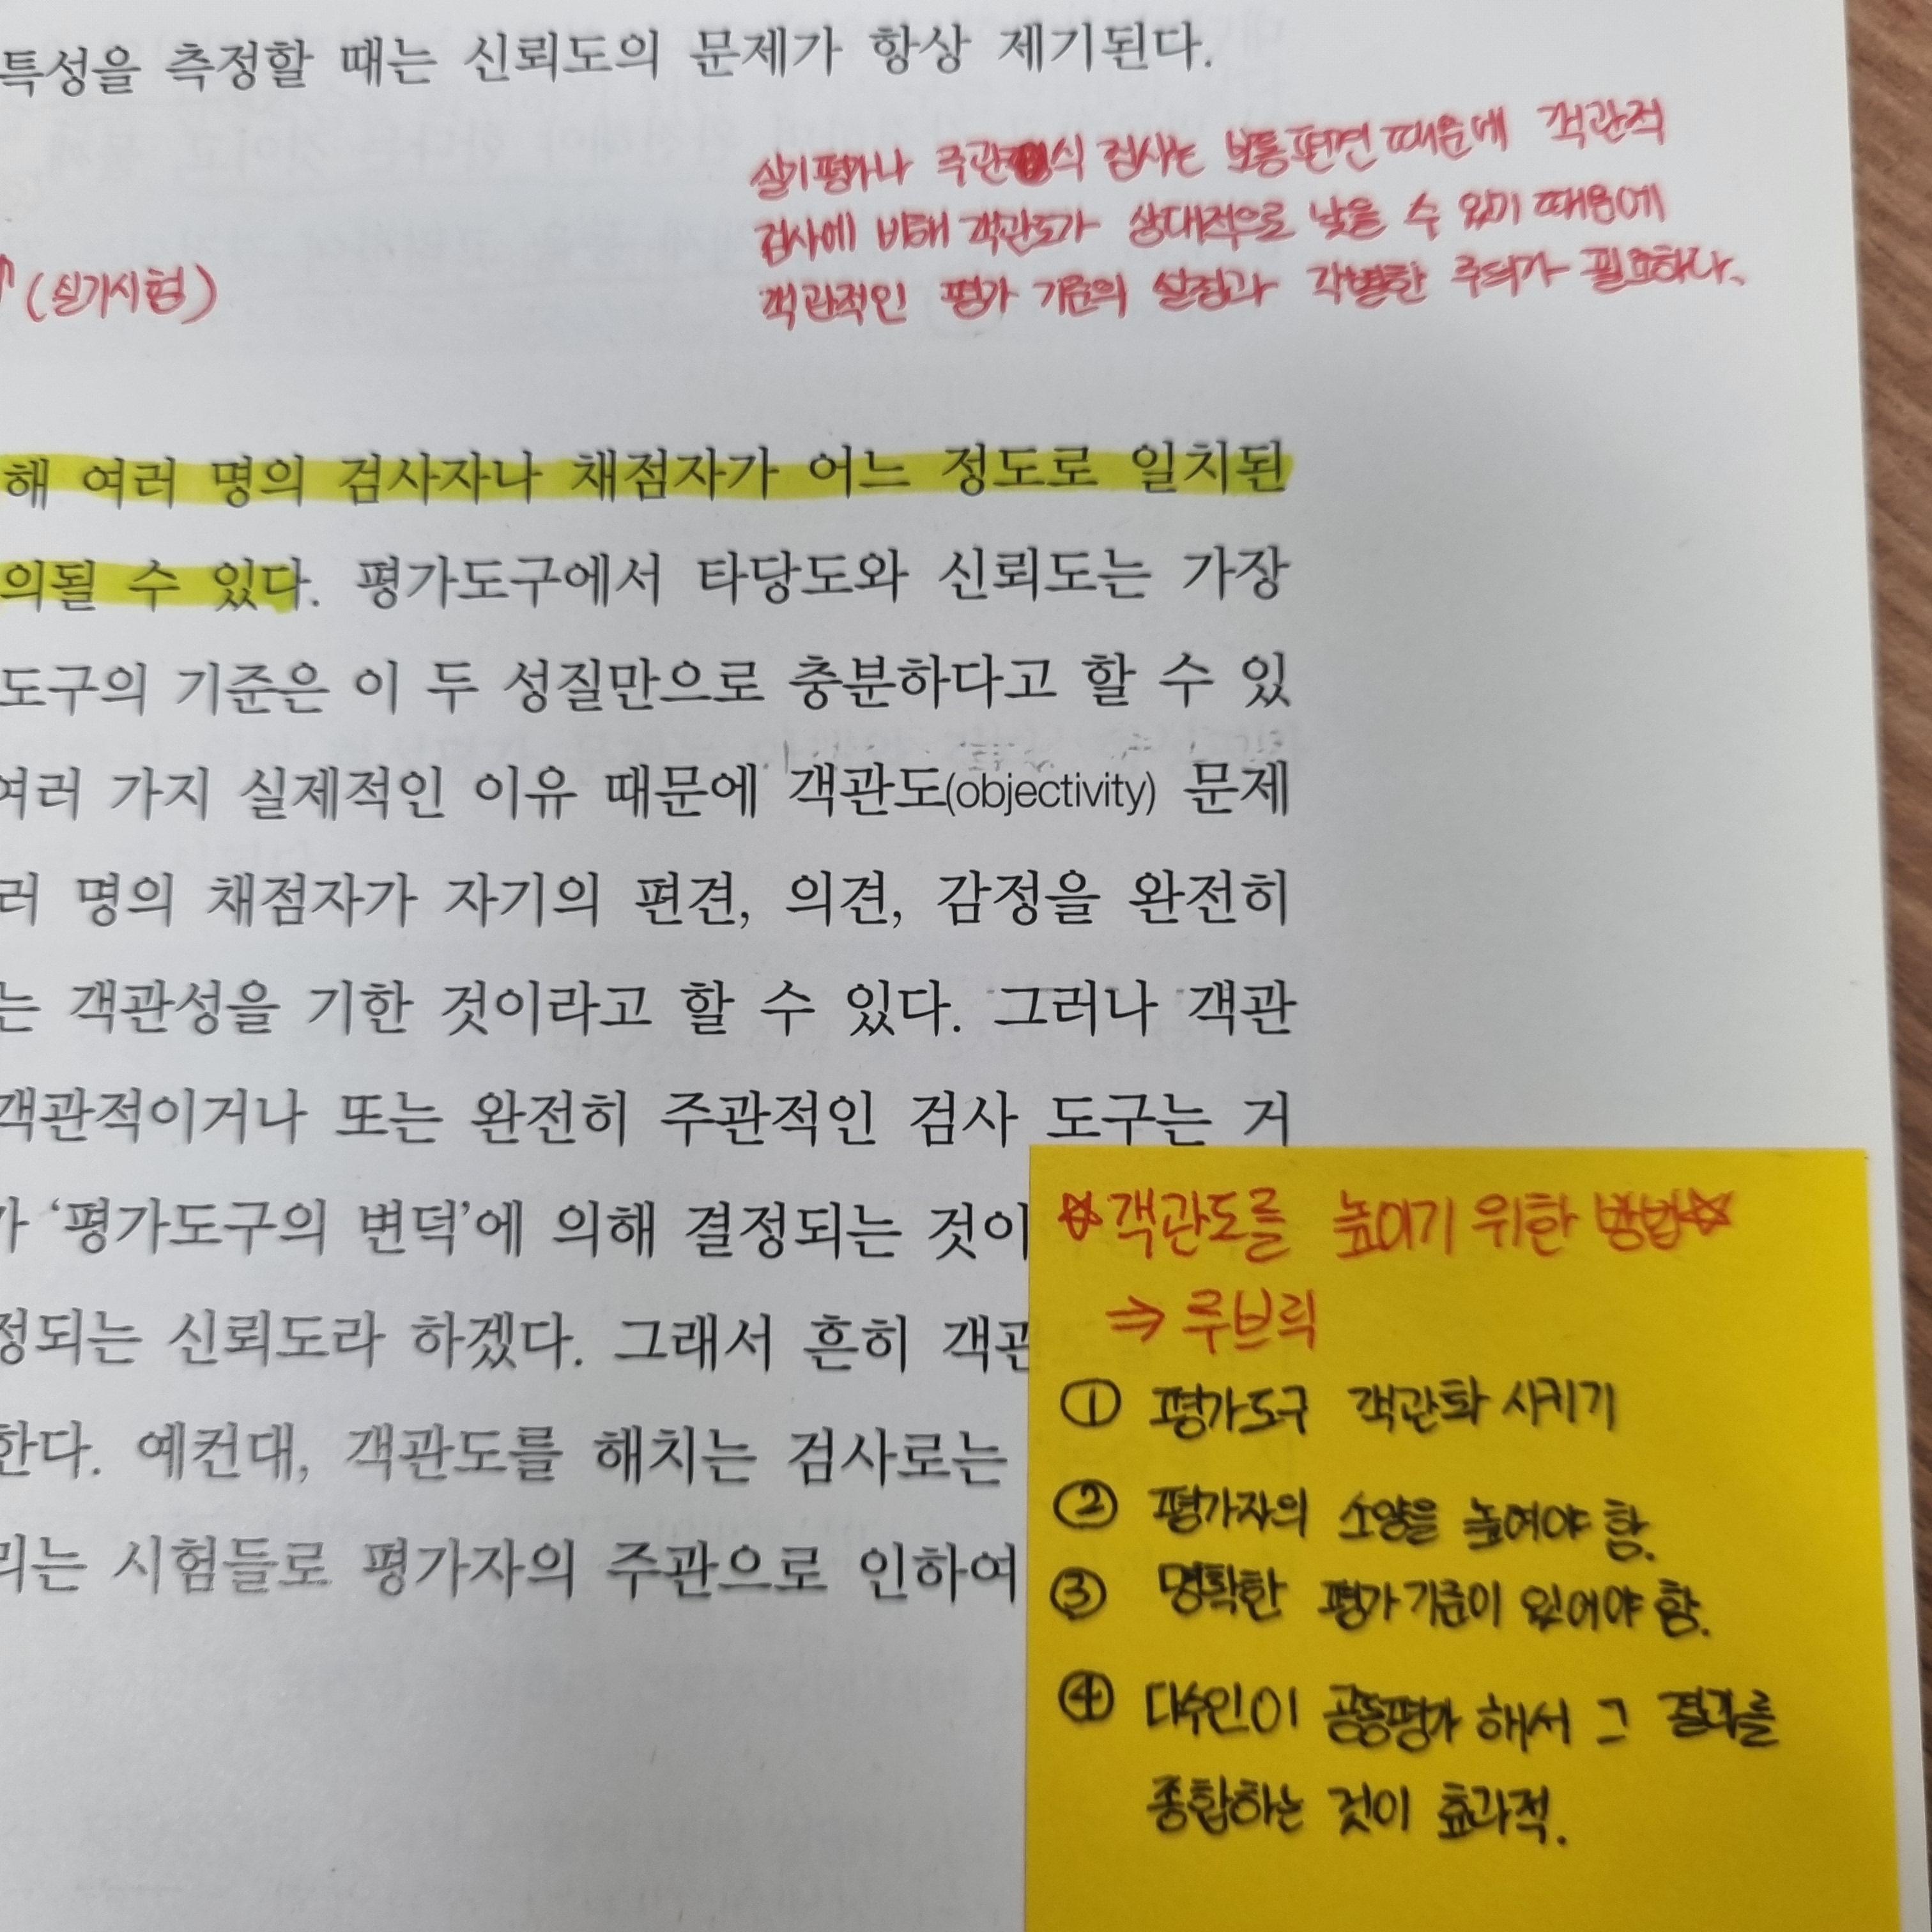 특성을 측정할 때는 신뢰도의 문제가 항상 제기된다.
실기평가나 주관식 검사는 보통 편견 때문에 객관적
검사에 비해 객관도가 상대적으로 낮을 수 있기 때문에
객관적인 평가 기준의 설정과 각별한 주의가 필요하다.
(실기시험)
해 여러 명의 검사자나 채점자가 어느 정도로 일치된
의될 수 있다. 평가도구에서 타당도와 신뢰도는 가장
도구의 기준은 이 두 성질만으로 충분하다고 할 수 있
여러 가지 실제적인 이유 때문에 객관도(objectivity) 문제
러 명의 채점자가 자기의 편견, 의견, 감정을 완전히
는 객관성을 기한 것이라고 할 수 있다. 그러나 객관
객관적이거나 또는 완전히 주관적인 검사 도구는 거
가 ‘평가도구의 변덕’에 의해 결정되는 것이
정되는 신뢰도라 하겠다. 그래서 흔히 객관
한다. 예컨대, 객관도를 해치는 검사로는
리는 시험들로 평가자의 주관으로 인하여
☆객관도를 높이기 위한 방법☆
⇒ 루브릭
① 평가도구 객관화 시키기
② 평가자의 소양을 높여야 함.
③ 명확한 평가 기준이 있어야 함.
④ 다수인이 공동평가 해서 그 결과를
종합하는 것이 효과적.